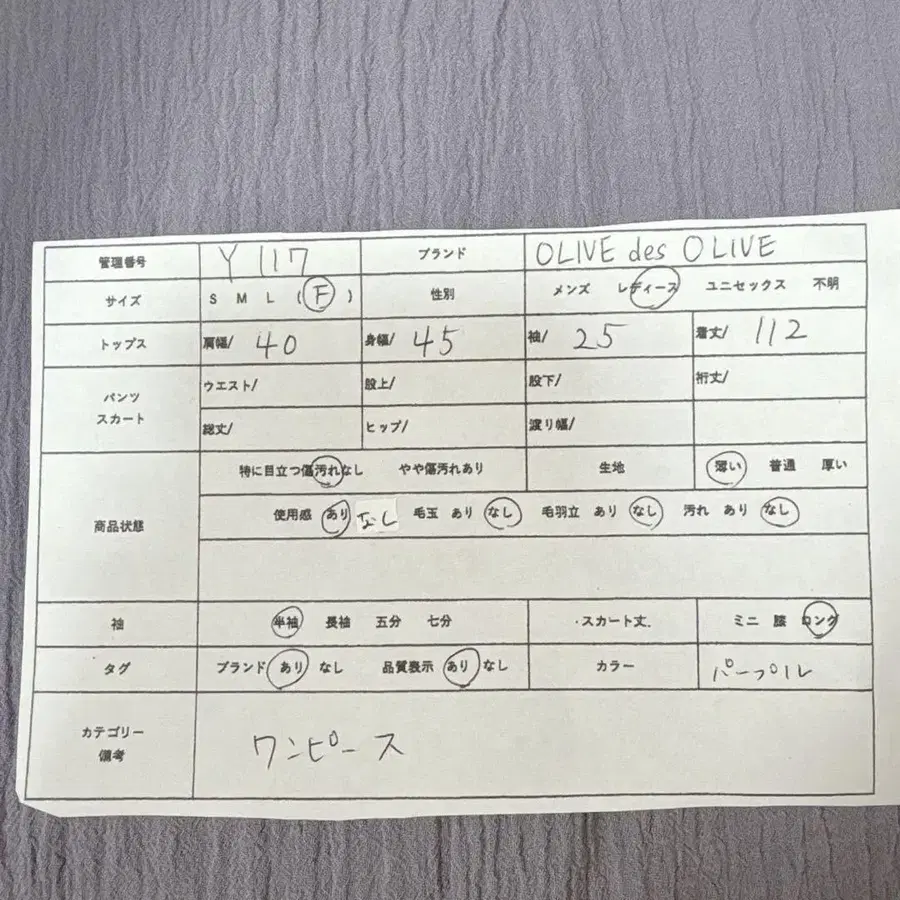 管理番号 Y117 ブランド OLIVE des OLIVE
サイズ S M L ( F ) 性別 メンズ レディース ユニセックス 不明
トップス 肩幅/ 40 身幅/ 45 袖/ 25 着丈/ 112
パンツ スカート
ウエスト/ 股上/ 股下/ 裄丈/
総丈/ ヒップ/ 渡り幅/
商品状態
特に目立つ傷汚れなし やや傷汚れあり 生地 薄い 普通 厚い
使用感 あり なし 毛玉 あり なし 毛羽立 あり なし 汚れ あり なし
袖 半袖 長袖 五分 七分 ・スカート丈. ミニ 膝 ロング
タグ ブランド あり なし 品質表示 あり なし カラー パープル
カテゴリー
備考
ワンピース